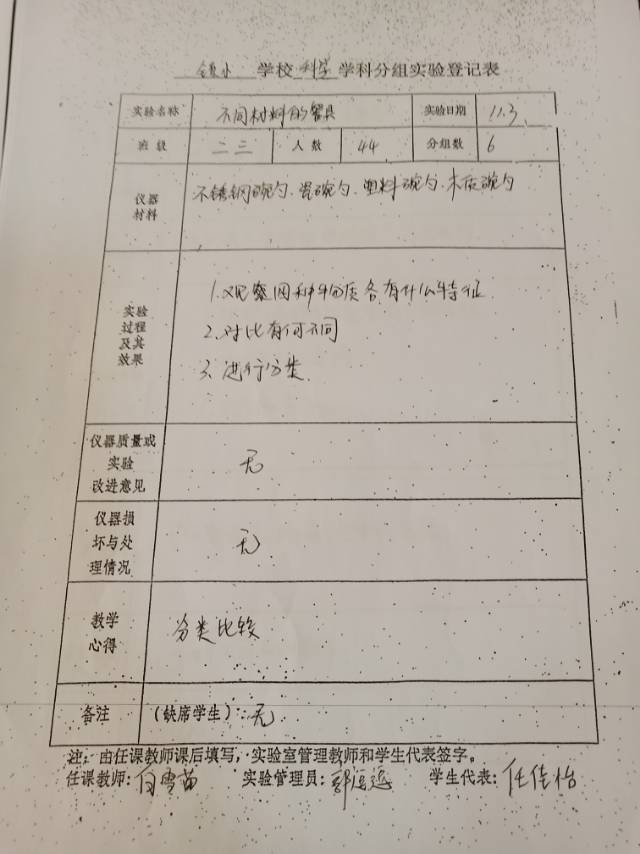 镇小 学校 科学 学科分组实验登记表
实验名称 不同材料的餐具 实验日期 11.3
班级 二三 人数 44 分组数 6
仪器
材料
不锈钢碗勺、瓷碗勺、塑料碗勺、木质碗勺
实验
过程
及其
效果
1.观察四种物质各有什么特征
2.对比有何不同
3.进行分类
仪器质量或
实验
改进意见
无
仪器损
坏与处
理情况
无
教学
心得
分类比较
备注 (缺席学生): 无
注:由任课教师课后填写,实验室管理教师和学生代表签字。
任课教师: 实验管理员: 学生代表:任佳怡